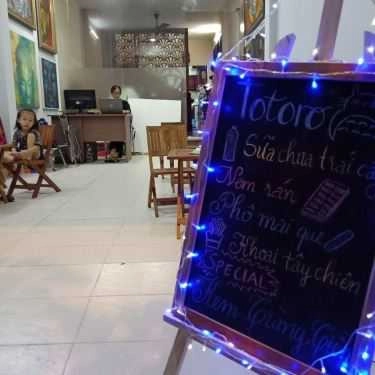 Totoro
Sữa chua trái cây
Nem rán
Phô mai que
Khoai tây chiên
SPECIAL
Kem